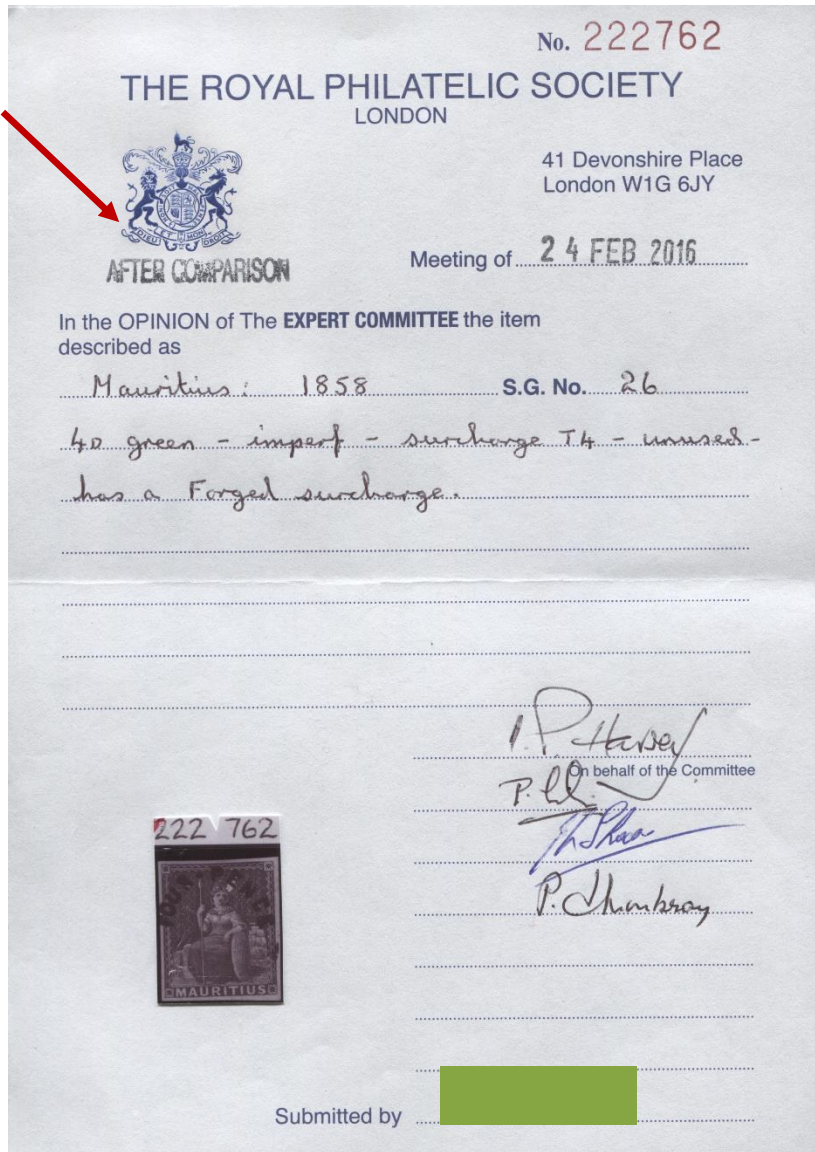 No. 222762
THE ROYAL PHILATELIC SOCIETY
LONDON
41 Devonshire Place
London W1G 6JY
DIEU ET MON DROIT
AFTER COMPARISON
Meeting of 24 FEB 2016
In the OPINION of The EXPERT COMMITTEE the item
described as
Mauritius: 1858 S.G. No. 26
4D green - imperf - surcharge T4 - unused -
has a Forged surcharge.
On behalf of the Committee
222 762
FOUR-PENCE
MAURITIUS
Submitted by